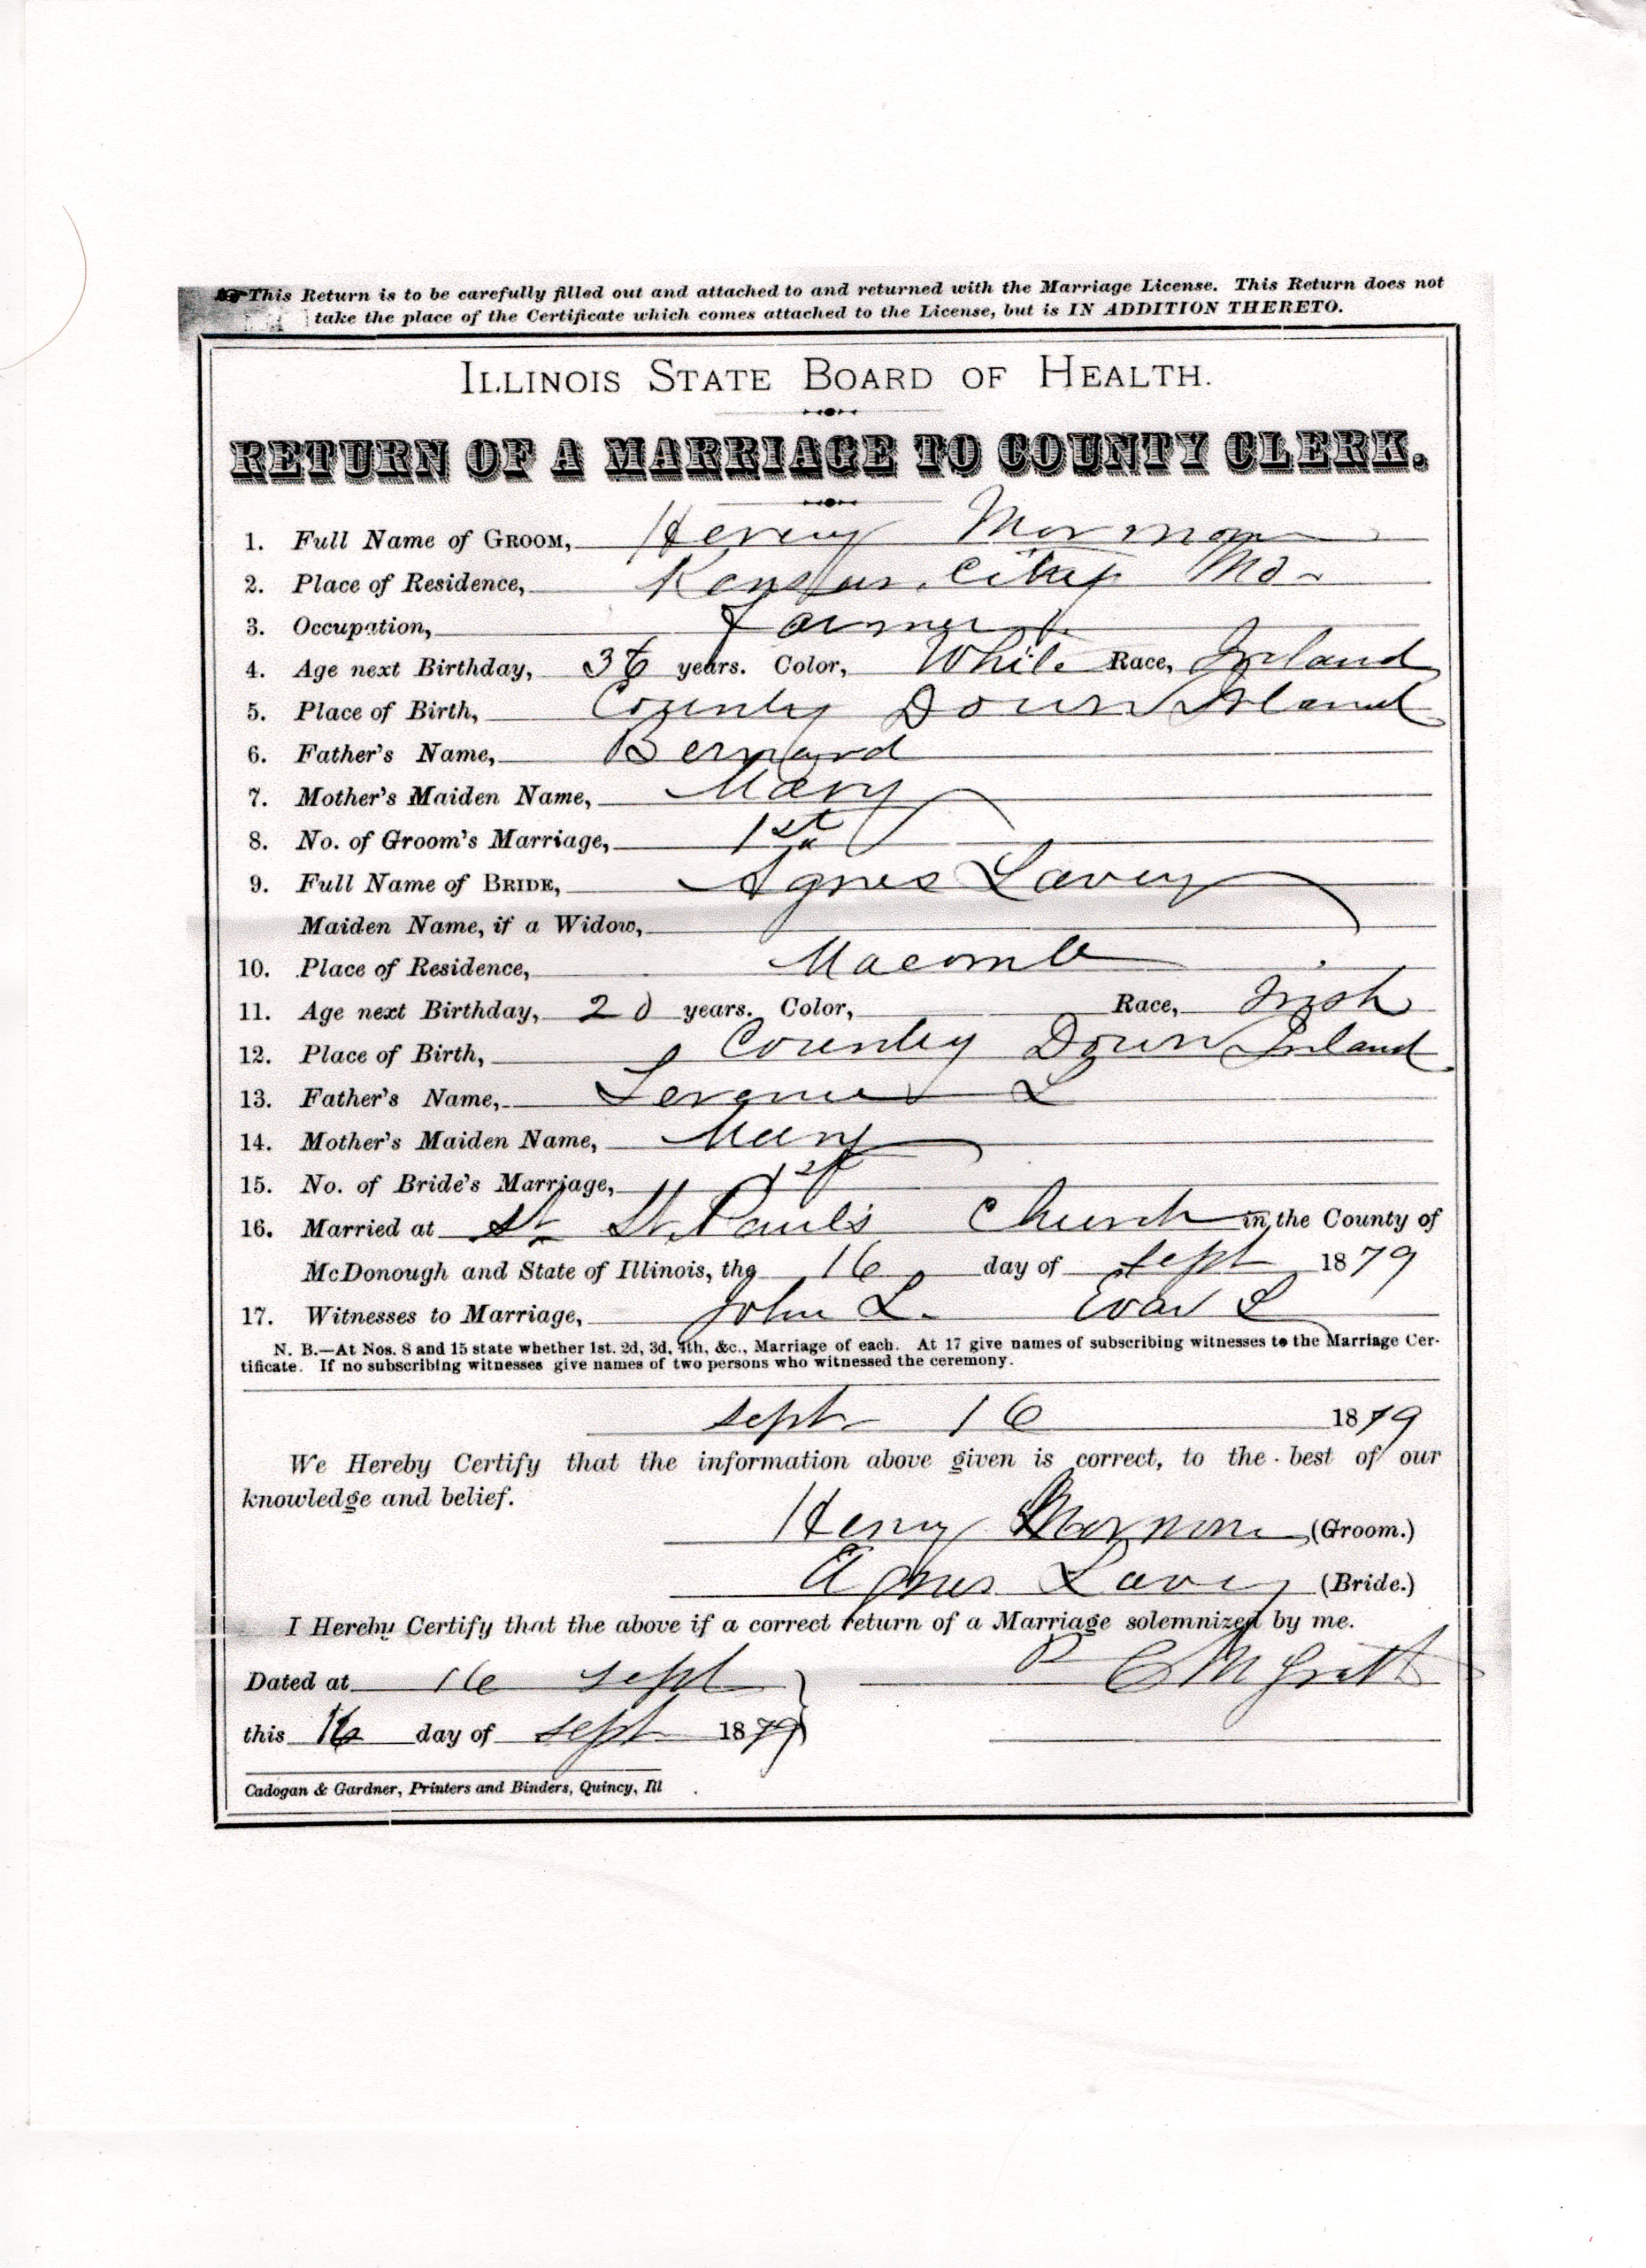 This Return is to be carefully filled out and attached to and returned with the Marriage License. This Return does not
take the place of the Certificate which comes attached to the License, but is IN ADDITION THERETO.
ILLINOIS STATE BOARD OF HEALTH.
RETURN OF A MARRIAGE TO COUNTY CLERK.
1. Full Name of GROOM, Henry
2. Place of Residence, Kansas City Mo-
3. Occupation, Farmer
4. Age next Birthday, 36 years. Color, White Race, Ireland
5. Place of Birth, County Down Ireland
6. Father's Name, Bernard
7. Mother's Maiden Name, Mary
8. No. of Groom's Marriage, 1st
9. Full Name of BRIDE, Agnes Lavey
Maiden Name, if a Widow,
10. Place of Residence, Macomb
11. Age next Birthday, 20 years. Color, Race, Irish
12. Place of Birth, County Down Ireland
13. Father's Name, L
14. Mother's Maiden Name, Mary
15. No. of Bride's Marriage, 1st
16. Married at St St Paul's Church in the County of
McDonough and State of Illinois, the 16 day of Sept 1879
17. Witnesses to Marriage, John L. L
N. B.—At Nos. 8 and 15 state whether 1st. 2d, 3d, 4th, &c., Marriage of each. At 17 give names of subscribing witnesses to the Marriage Cer-
tificate. If no subscribing witnesses give names of two persons who witnessed the ceremony.
Sept 16 1879
We Hereby Certify that the information above given is correct, to the best of our
knowledge and belief.
Henry (Groom.)
Agnes Lavey (Bride.)
I Hereby Certify that the above if a correct return of a Marriage solemnized by me.
Dated at 16 Sept
this 16 day of Sept 1879
Cadogan & Gardner, Printers and Binders, Quincy, Ill